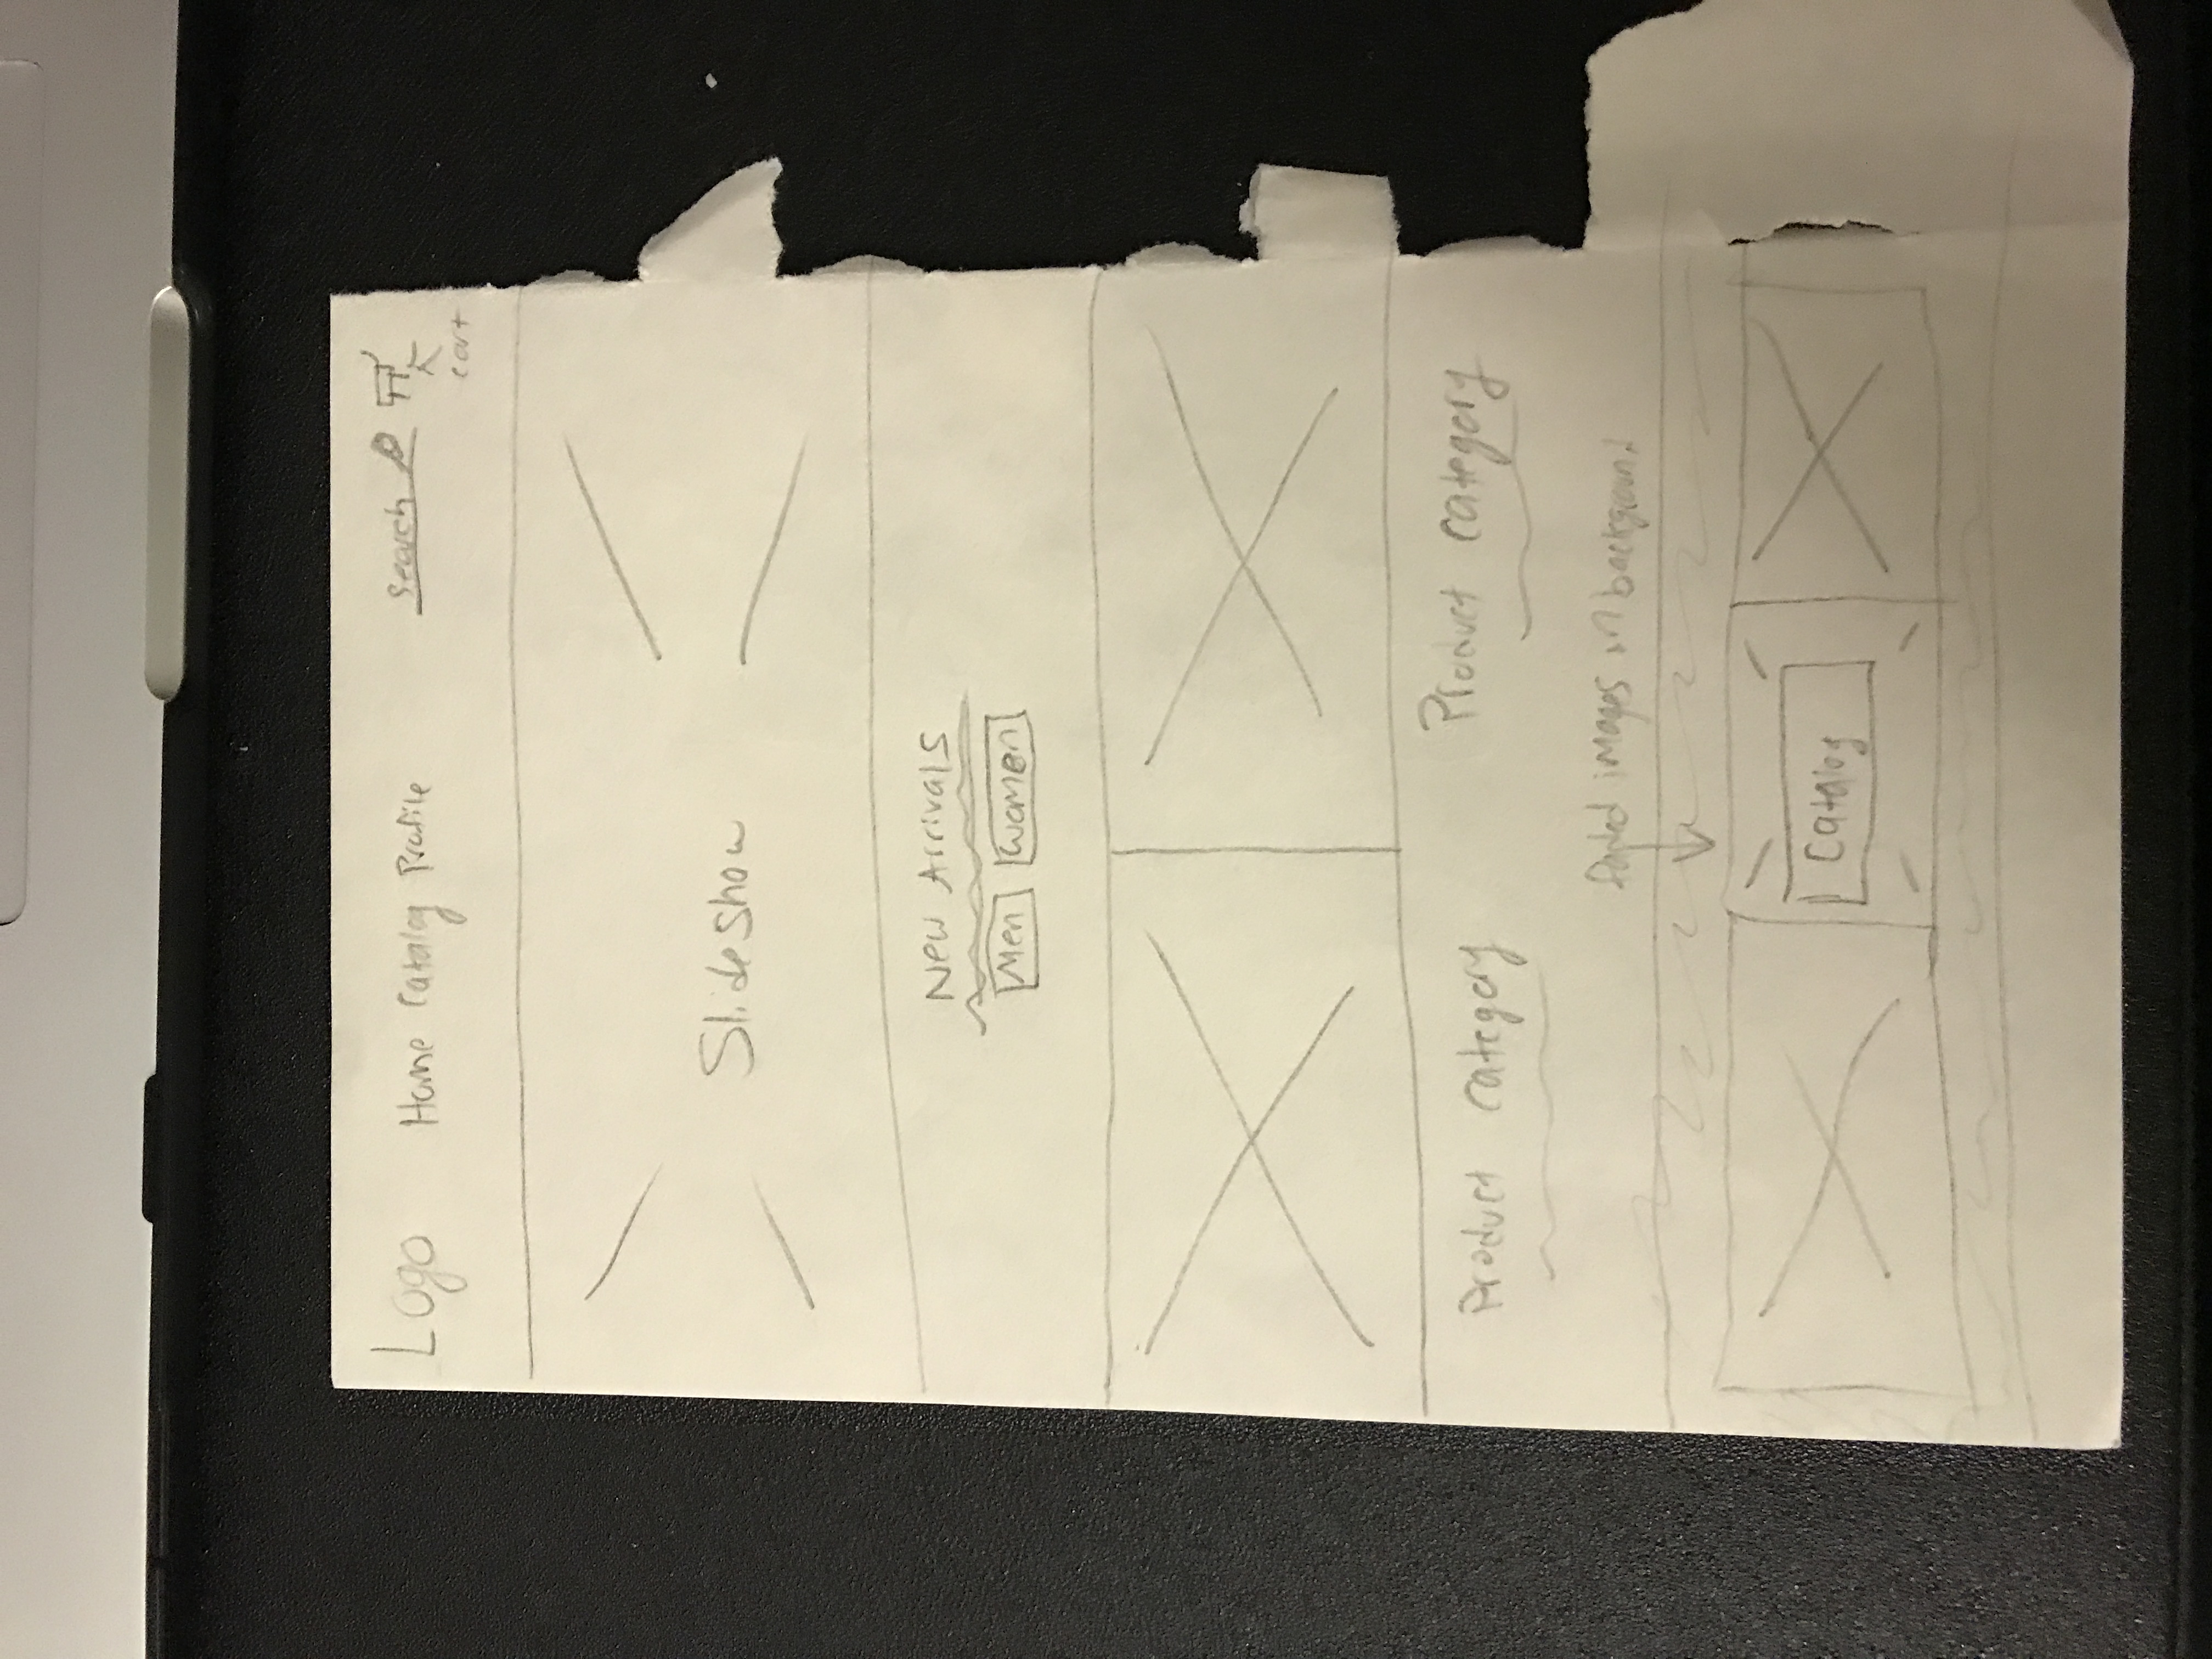 Logo Home Catalog Profile search
cart
Slideshow
New Arrivals
Men Women
Product category Product category
faded images in background
Catalog